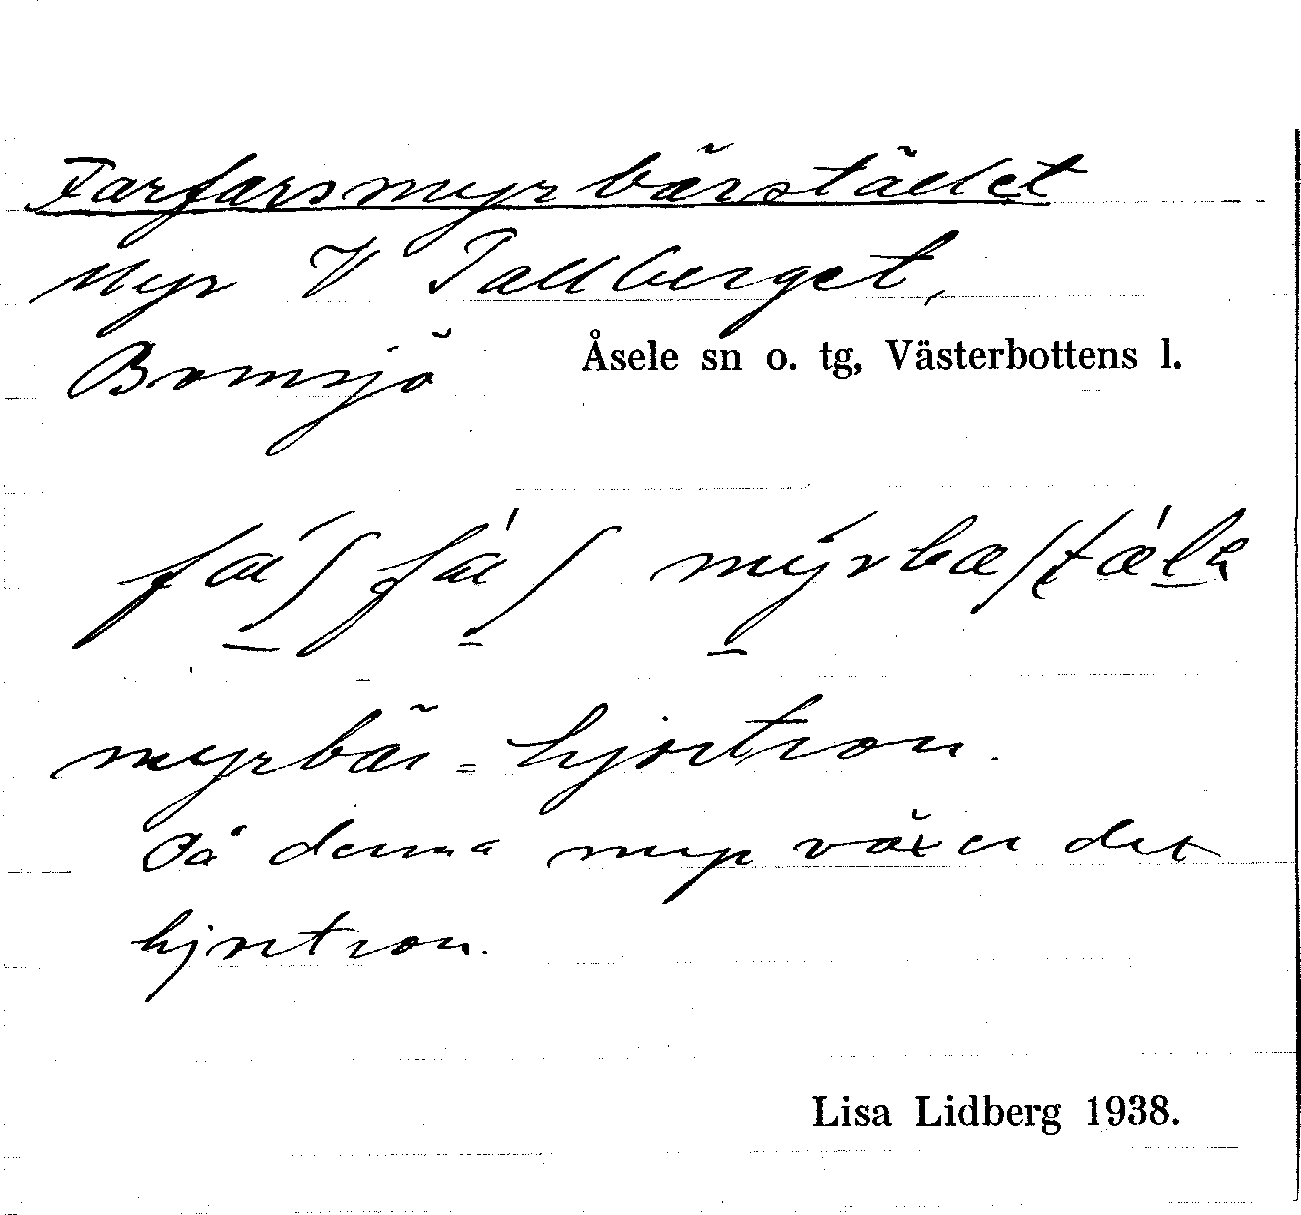 Farfarsmyrbärstället
Myr V Tallberget,
Bomsjö Åsele sn o. tg, Västerbottens l.
myrbär = hjortron.
På denna myr växer det
hjortron.
Lisa Lidberg 1938.